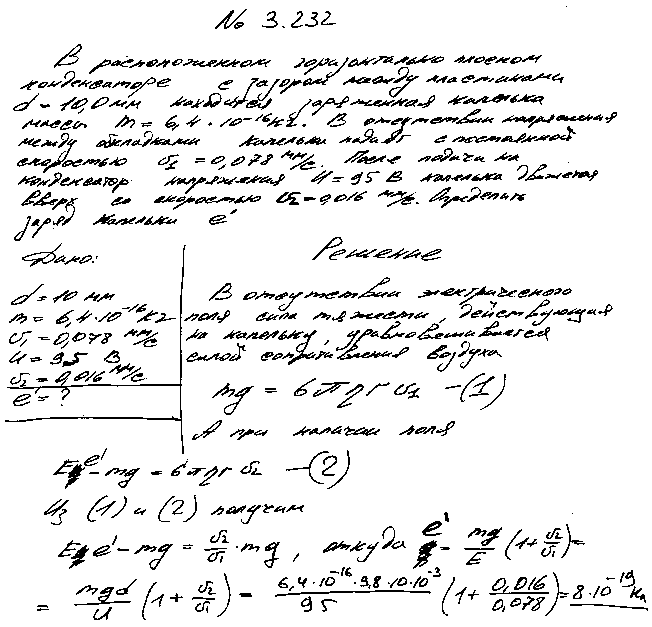 № 3.232
В расположенном горизонтально плоском
конденсаторе с зазором между пластинами
d = 10,0 мм находится заряженная капелька
массы m = 6,4 · 10⁻¹⁶ кг. В отсутствии напряжения
между обкладками капелька падает с постоянной
скоростью υ₁ = 0,078 мм/с. После подачи на
конденсатор напряжения U = 95 В капелька движется
вверх со скоростью υ₂ = 0,016 мм/с. Определить
заряд капельки e'
Дано:
d = 10 мм
m = 6,4 · 10⁻¹⁶ кг
υ₁ = 0,078 мм/с
U = 95 В
υ₂ = 0,016 мм/с
e' = ?
Решение
В отсутствии электрического
поля сила тяжести, действующая
на капельку, уравновешивается
силой сопротивления воздуха
mg = 6πηr υ₁ – (1)
А при наличии поля
E e' – mg = 6πηr υ₂ – (2)
Из (1) и (2) получим
E e' – mg = υ₂/υ₁ · mg, откуда e' = mg/E (1 + υ₂/υ₁) =
= mgd/U (1 + υ₂/υ₁) = 6,4 · 10⁻¹⁶ · 9,8 · 10 · 10⁻³/95 (1 + 0,016/0,078) = 8 · 10⁻¹⁹ Кл